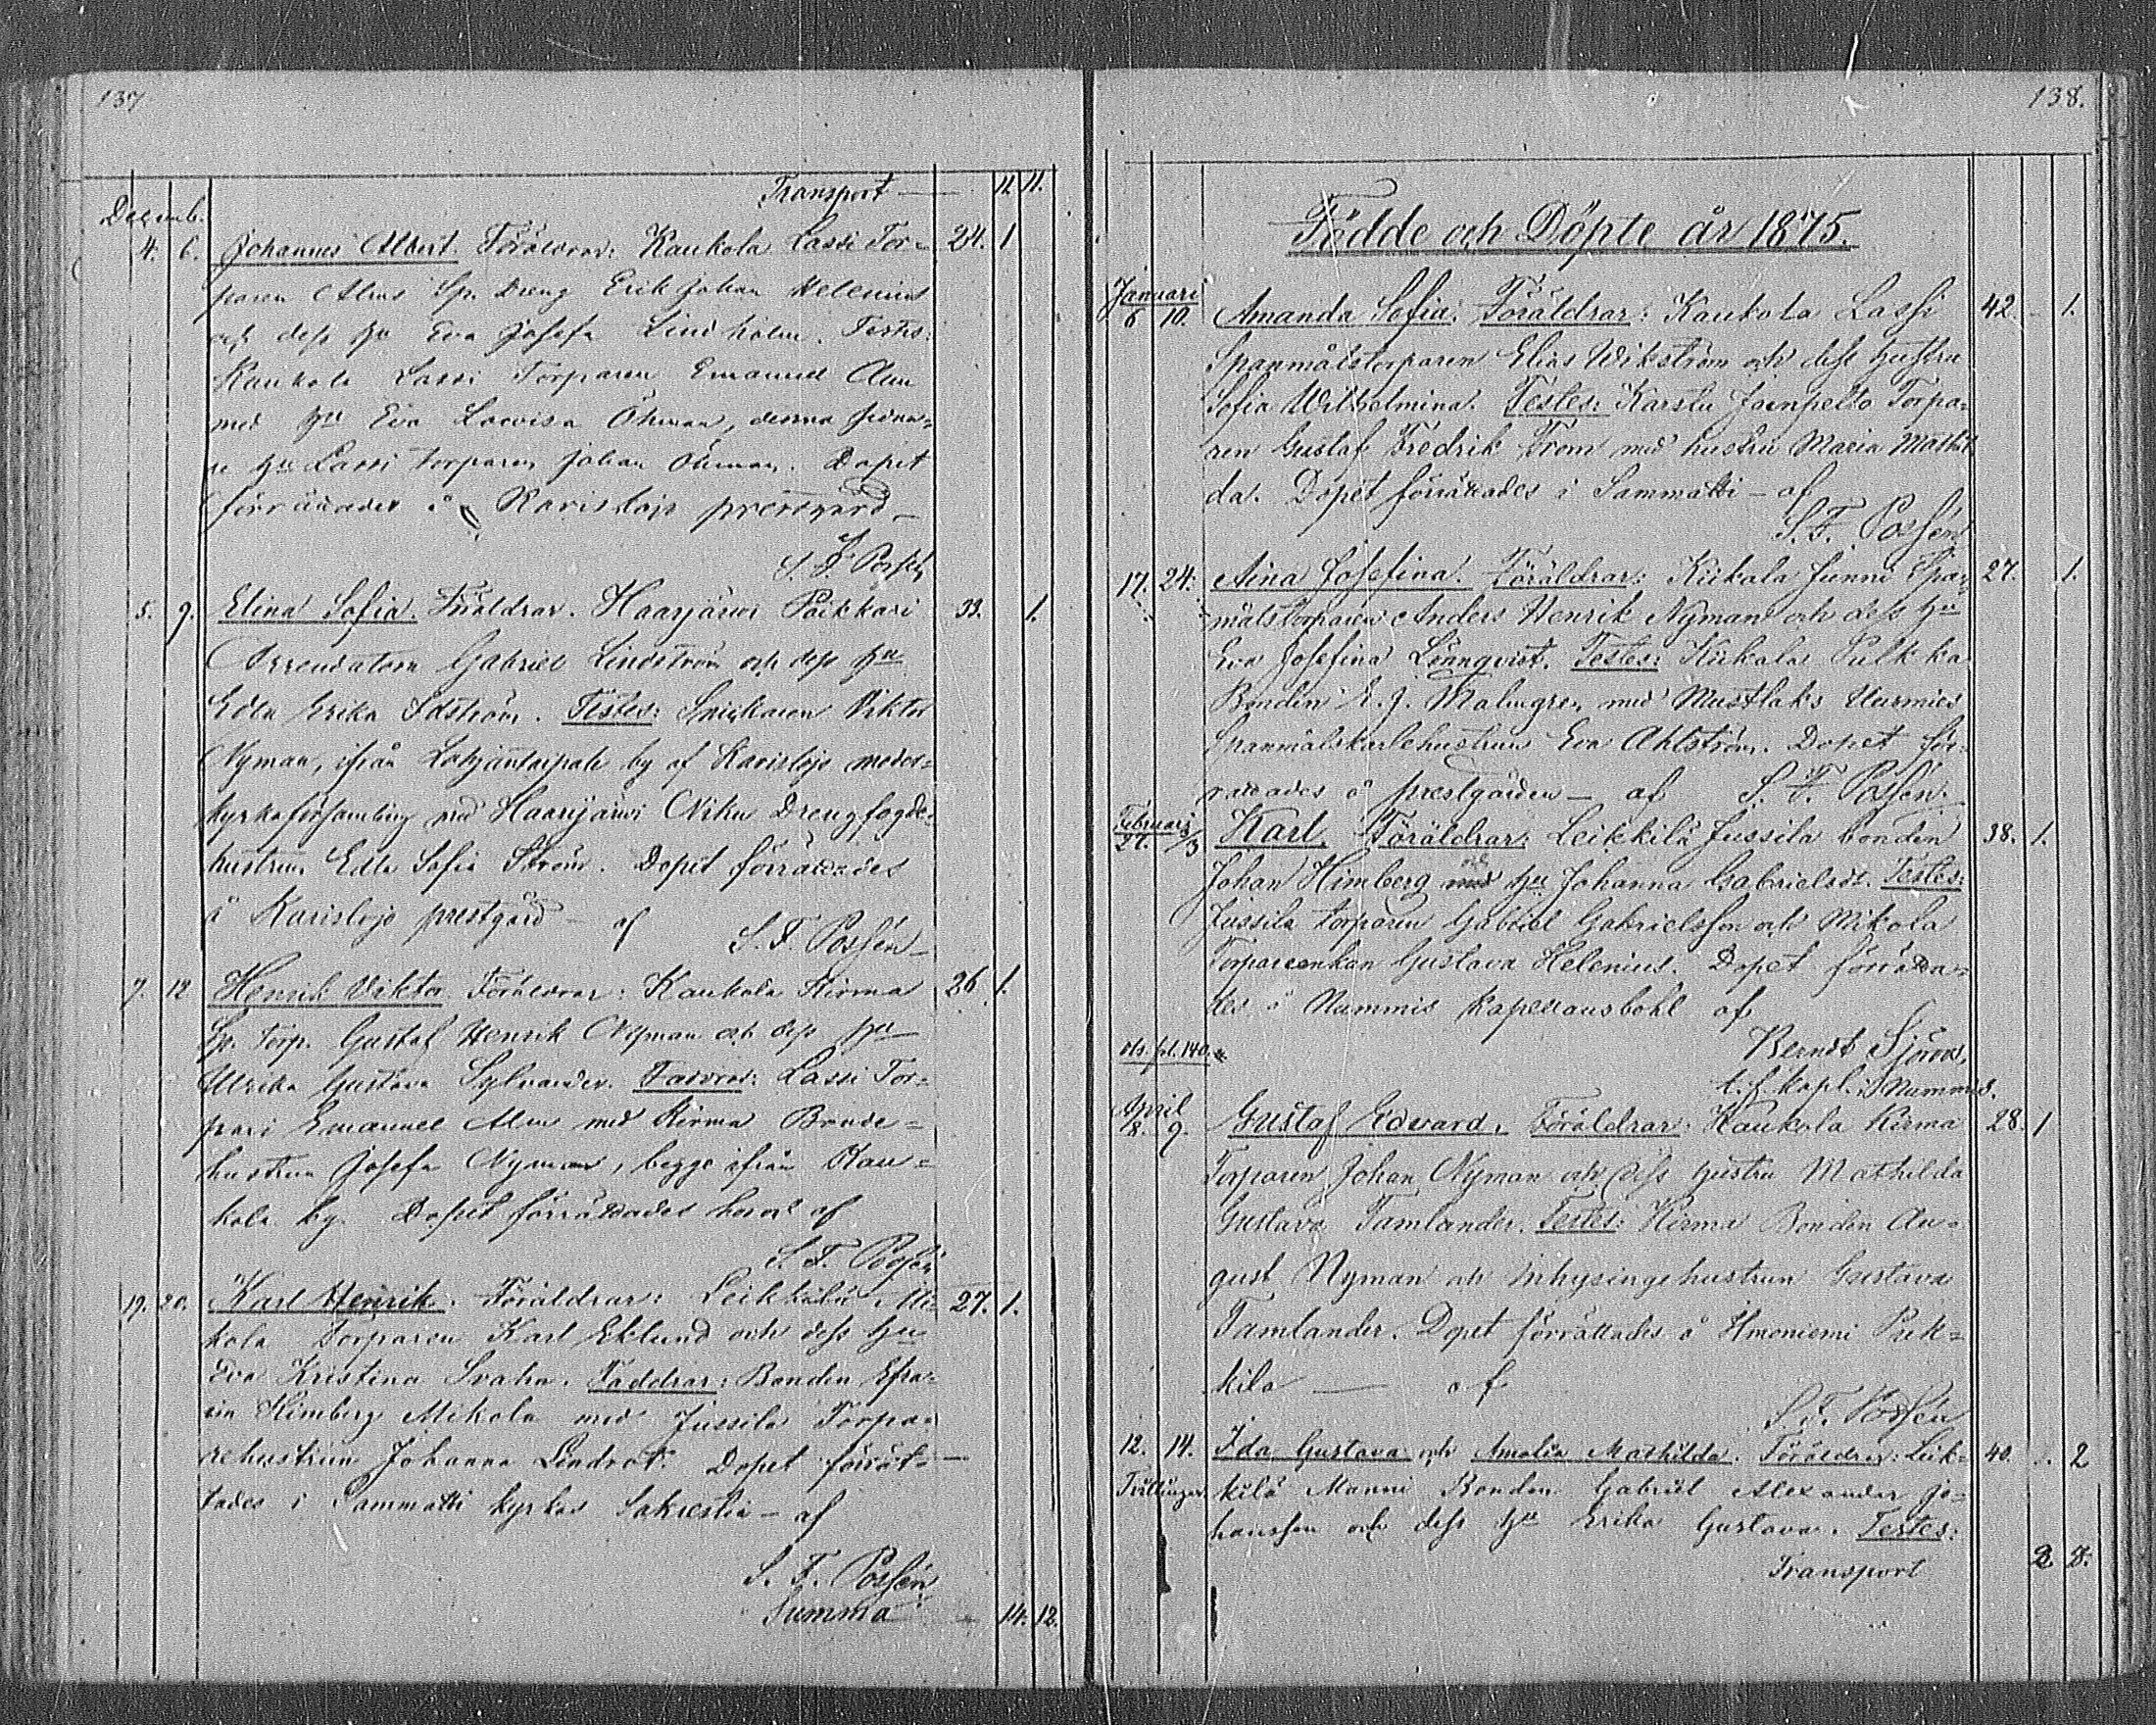 137
Transport — 11. 11.
Decemb.
4. 6. Johannes Albert. Föräldrar: Kaukola Lassi Tor= 24. 1
paren Alms Sp. Dreng Erik Johan Helenius
och dess Hu Eva Josefa Lindholm. Testes:
Kaukola Lassi Torparen Emanuel Alm
med Hu Eva Lovisa Öhman, denna
Hu Lassi torparen Johan Öhman. Dopet
förrättades å Karislojo prestgård —
S. F. Possén
5. 9. Elina Sofia. Föräldrar. Haarjärvi Paikkari 33. 1.
Arrendatorn Gabriel Lindström och dess Hu
Edla Erika Idström. Testes: Snickaren Viktor
Nyman, ifrån Lohjantaipale by af Karislojo moder=
kyrkoförsamling med Haarijärvi Niku Drengfogde=
hustrun Edla Sofia Ström. Dopet förrättades
å Karislojo prestgård — af S. F. Possén —
7. 12 Henrik Viktor. Föräldrar: Kaukola Kirma 26. 1.
Sp. Torp. Gustaf Henrik Nyman och dess Hu
Ulrika Gustava Sylvander. Faddrar: Lassi Tor=
pari Emanuel Alm med Kirma Bonde=
hustrun Josefa Nyman, begge ifrån Kau=
kola by. Dopet förrättades af
S. F. Possén
19. 20. Karl Henrik. Föräldrar: Leikkilä Mi= 27. 1.
kola Torparen Karl Eklund och dess Hu
Eva Kristina Svahn. Faddrar: Bonden Efra=
im Himberg Mikola med Jussila Torpa=
rehustrun Johanna Lindrot. Dopet förrät= —
tades i Sammatti kyrkas Sakrestia — af
S. F. Possén
Summa — 14. 12.
138.
Födde och Döpte år 1875.
Januari
6 10. Amanda Sofia. Föräldrar: Kaukola Lassi 42. — 1.
Spanmålstorparen Elias Wikström och dess hustru
Sofia Wilhelmina. Testes: Karstu Torpa=
ren Gustaf Fredrik From med hustru Maria Mathil
da. Dopet förrättades i Sammatti — af
S. F. Possén
17. 24. Aina Josefina. Föräldrar: Kiikala Junni Span= 27. 1.
målstorparen Anders Henrik Nyman och dess Hu
Eva Josefina Lönnqvist. Testes: Kiikala Pulkka
Bonden E. J. Malmgren med Mustlaks Uurmies
Spanmålskarlehustrun Eva Ahlström. Dopet för=
rättades å prestgården — af S. F. Possén.
Februari
27. 3/3 Karl. Föräldrar: Leikkilä Jussila bonden 38. 1.
Johan Himberg med och Hu Johanna Gabrielsdr. Testes:
Jussila torparen Gabriel Gabrielsson och Mikola
Torpareenkan Gustava Helenius. Dopet förrätta=
des å Nummis Kapellansbohl af
Berndt Sjöroos,
t. f. kapl. i Nummis.
fol. 140.
April
8. 9. Gustaf Edvard. Föräldrar: Kaukola Kirma 28. 1
Torparen Johan Nyman och dess hustru Mathilda
Gustava Tamlander. Testes: Kirma Bonden Au=
gust Nyman och Inhysingehustrun Gustava
Tamlander. Dopet förrättades å Ilmoniemi Puk=
kila — af
S. F. Possén
12. 14. Ida Gustava och Amalia Mathilda. Föräldrar: Leik= 40. 2
Tvillingar. kilä Manni Bonden Gabriel Alexander Jo=
hansson och dess Hu Erika Gustava. Testes:
Transport